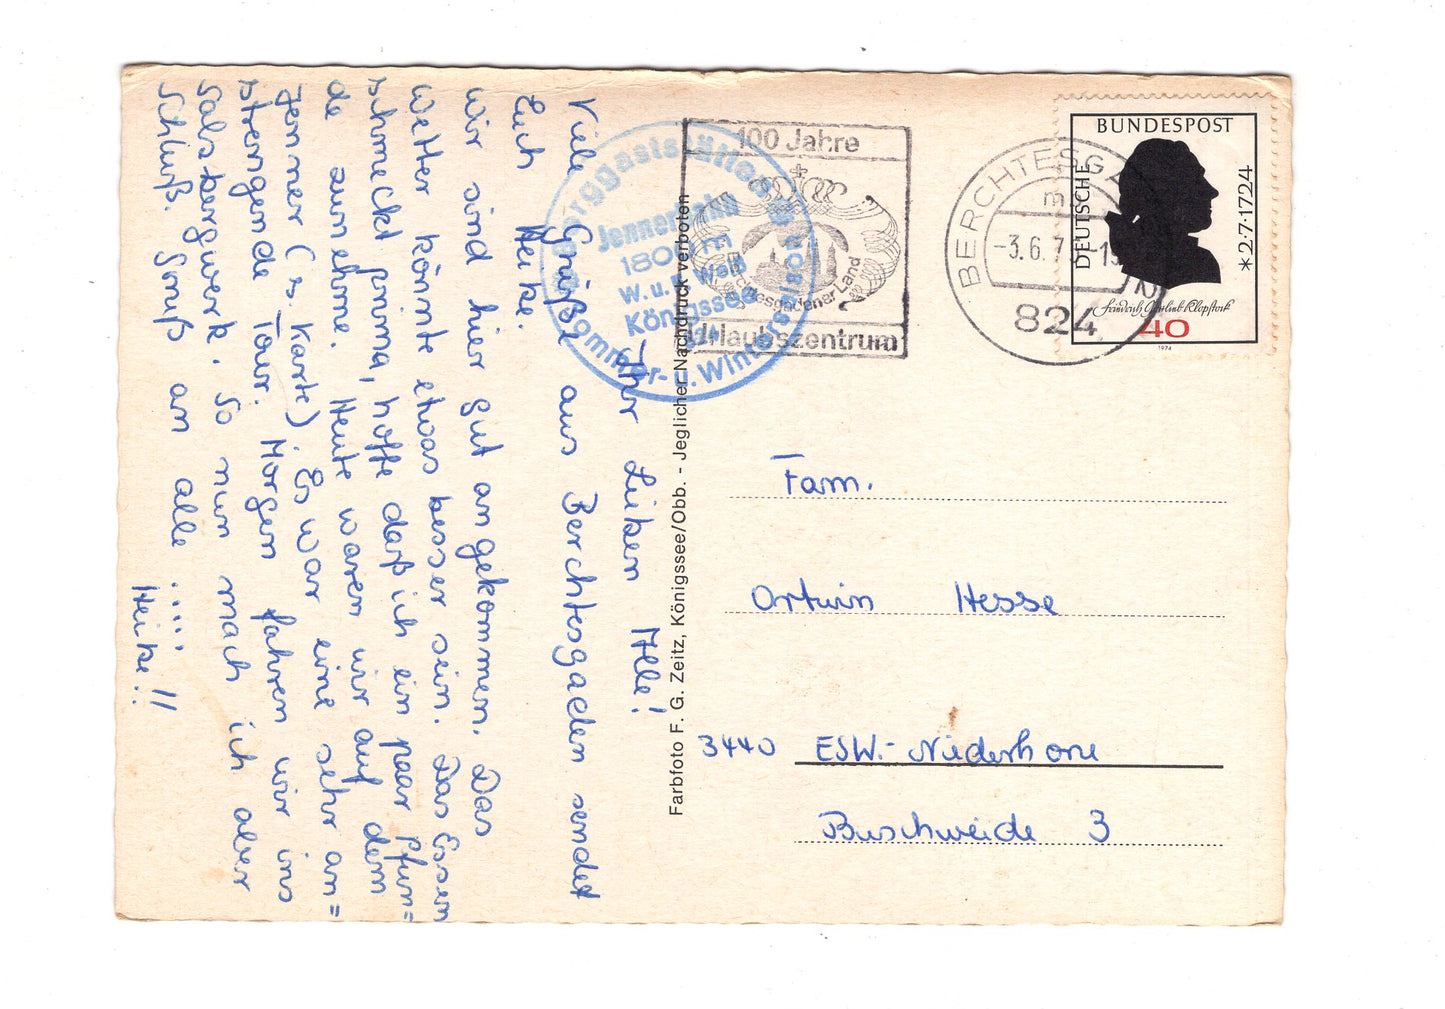 Ihr Lieben Alle!
Viele Grüße aus Berchtesgaden sendet
Euch Heike.
Wir sind hier gut angekommen. Das
Wetter könnte etwas besser sein. Das Essen
schmeckt prima, hoffe daß ich ein paar Pfun=
de zunehme. Heute waren wir auf dem
Jenner (s. Karte). Es war eine sehr an=
strengende Tour. Morgen fahren wir ins
Salzbergwerk. So nun mach ich aber
Schluß. Gruß an alle .....
Heike!!
Farbfoto F. G. Zeitz, Königssee/Obb. - Jeglicher Nachdruck verboten
Berggaststätten
Jennerbahn
1800 m
W. u. F. Weiß
Königssee
Sommer- u. Wintersaison
100 Jahre
Berchtesgadener Land
Urlaubszentrum
BERCHTESGA
-3.6.7
824
BUNDESPOST
DEUTSCHE
*2·7·1724
Friedrich Gottlieb Klopstock
40
1974
Fam.
Ortwin Hesse
3440 ESW.-Niederhone
Buschweide 3